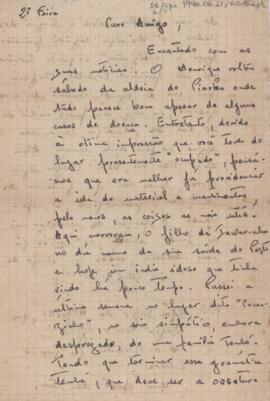 2ª Feira
Caro Amigo,
Encantado com as
suas notícias. O Henrique voltou
sábado da aldeia do
tudo parece bom apesar de alguns
casos de doença. Entretanto, devido
à ótima impressão que você teve do
lugar presentemente "ocupado",
mos que era melhor já providenciar
a ida do material e mantimentos,
pelo menos, as coisas
Aqui morreram, o filho da
no dia mesmo da sua saída do Posto
e hoje um índio idoso que tinha
vindo há pouco tempo. Passei a
última semana no lugar dito
, no sítio simpático, embora
desprezado, de uma família
Tendo que terminar essa gramática
, que deve ser a ossatura